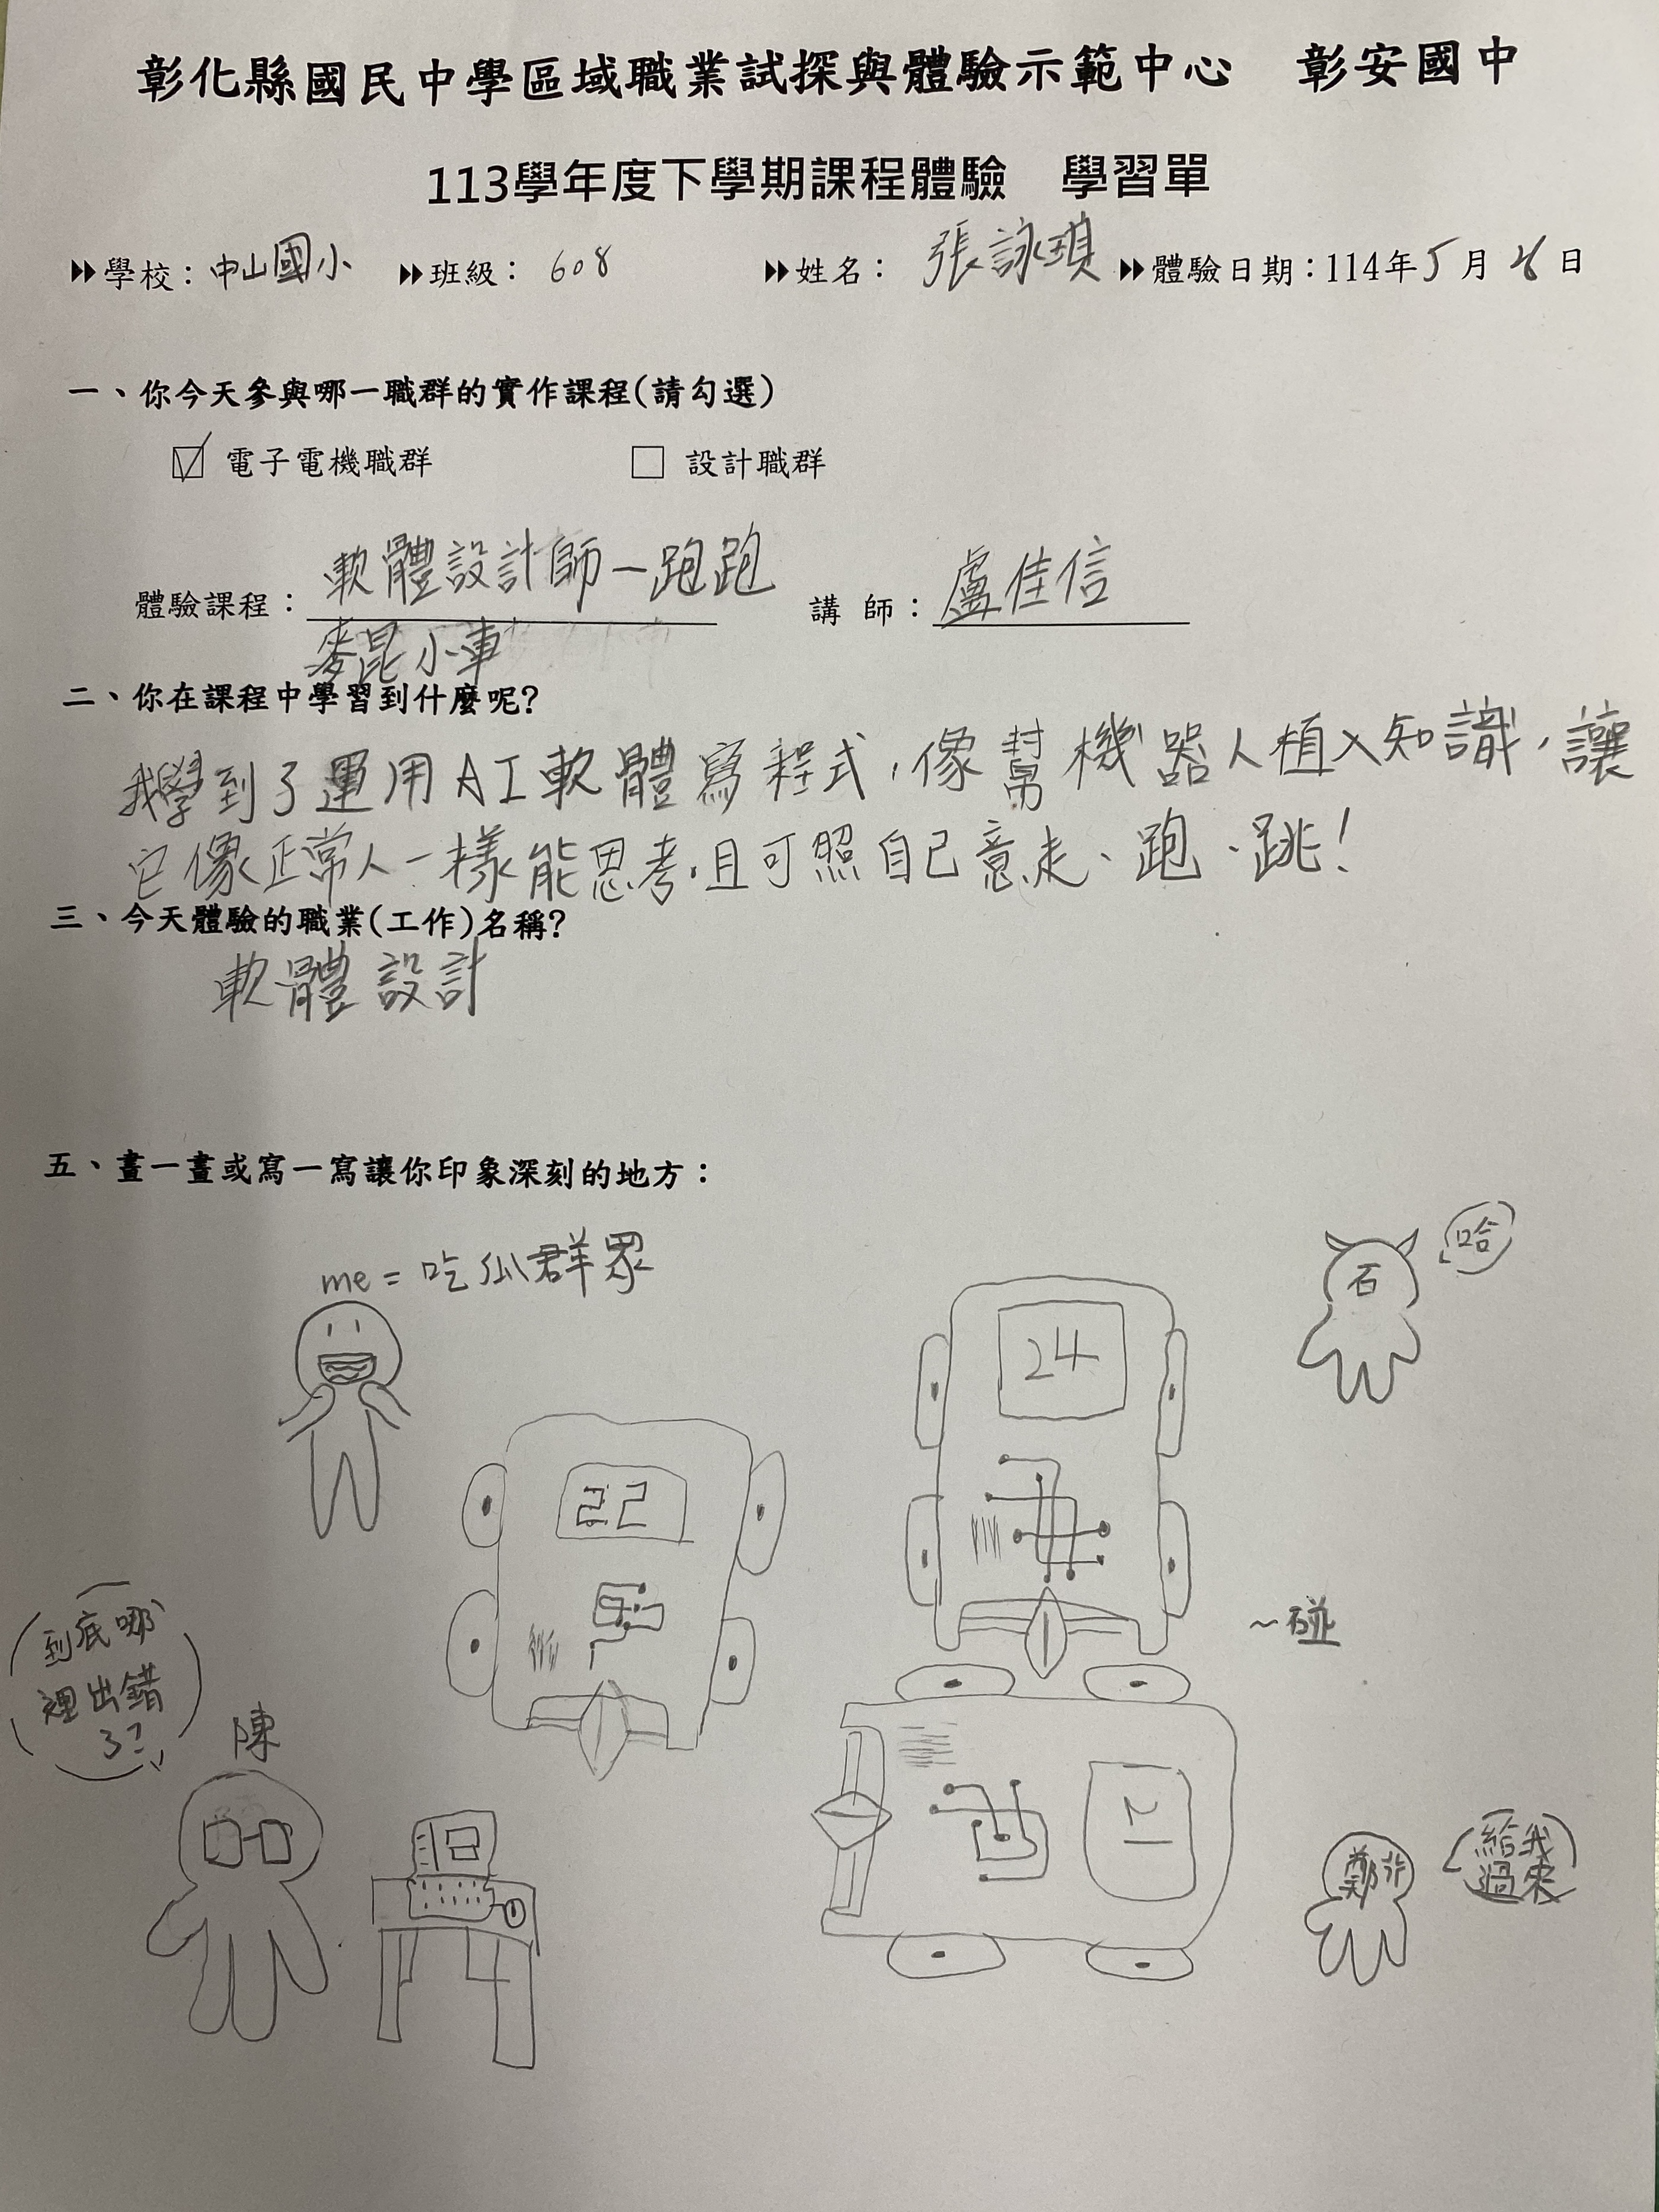 彰化縣國民中學區域職業試探與體驗示範中心　彰安國中
113學年度下學期課程體驗　學習單
學校：中山國小 班級：608 姓名：張詠琪 體驗日期：114年5月26日
一、你今天參與哪一職群的實作課程(請勾選)
☑ 電子電機職群 ☐ 設計職群
體驗課程：軟體設計師—跑跑 講 師：盧佳信
麥昆小車
二、你在課程中學習到什麼呢?
我學到了運用AI軟體寫程式，像幫機器人植入知識，讓
它像正常人一樣能思考，且可照自己意走、跑、跳！
三、今天體驗的職業(工作)名稱?
軟體設計
五、畫一畫或寫一寫讓你印象深刻的地方：
me = 吃瓜群眾
石
哈
24
22
~碰
到底哪
裡出錯
了?
陳
鄭
給我
過來